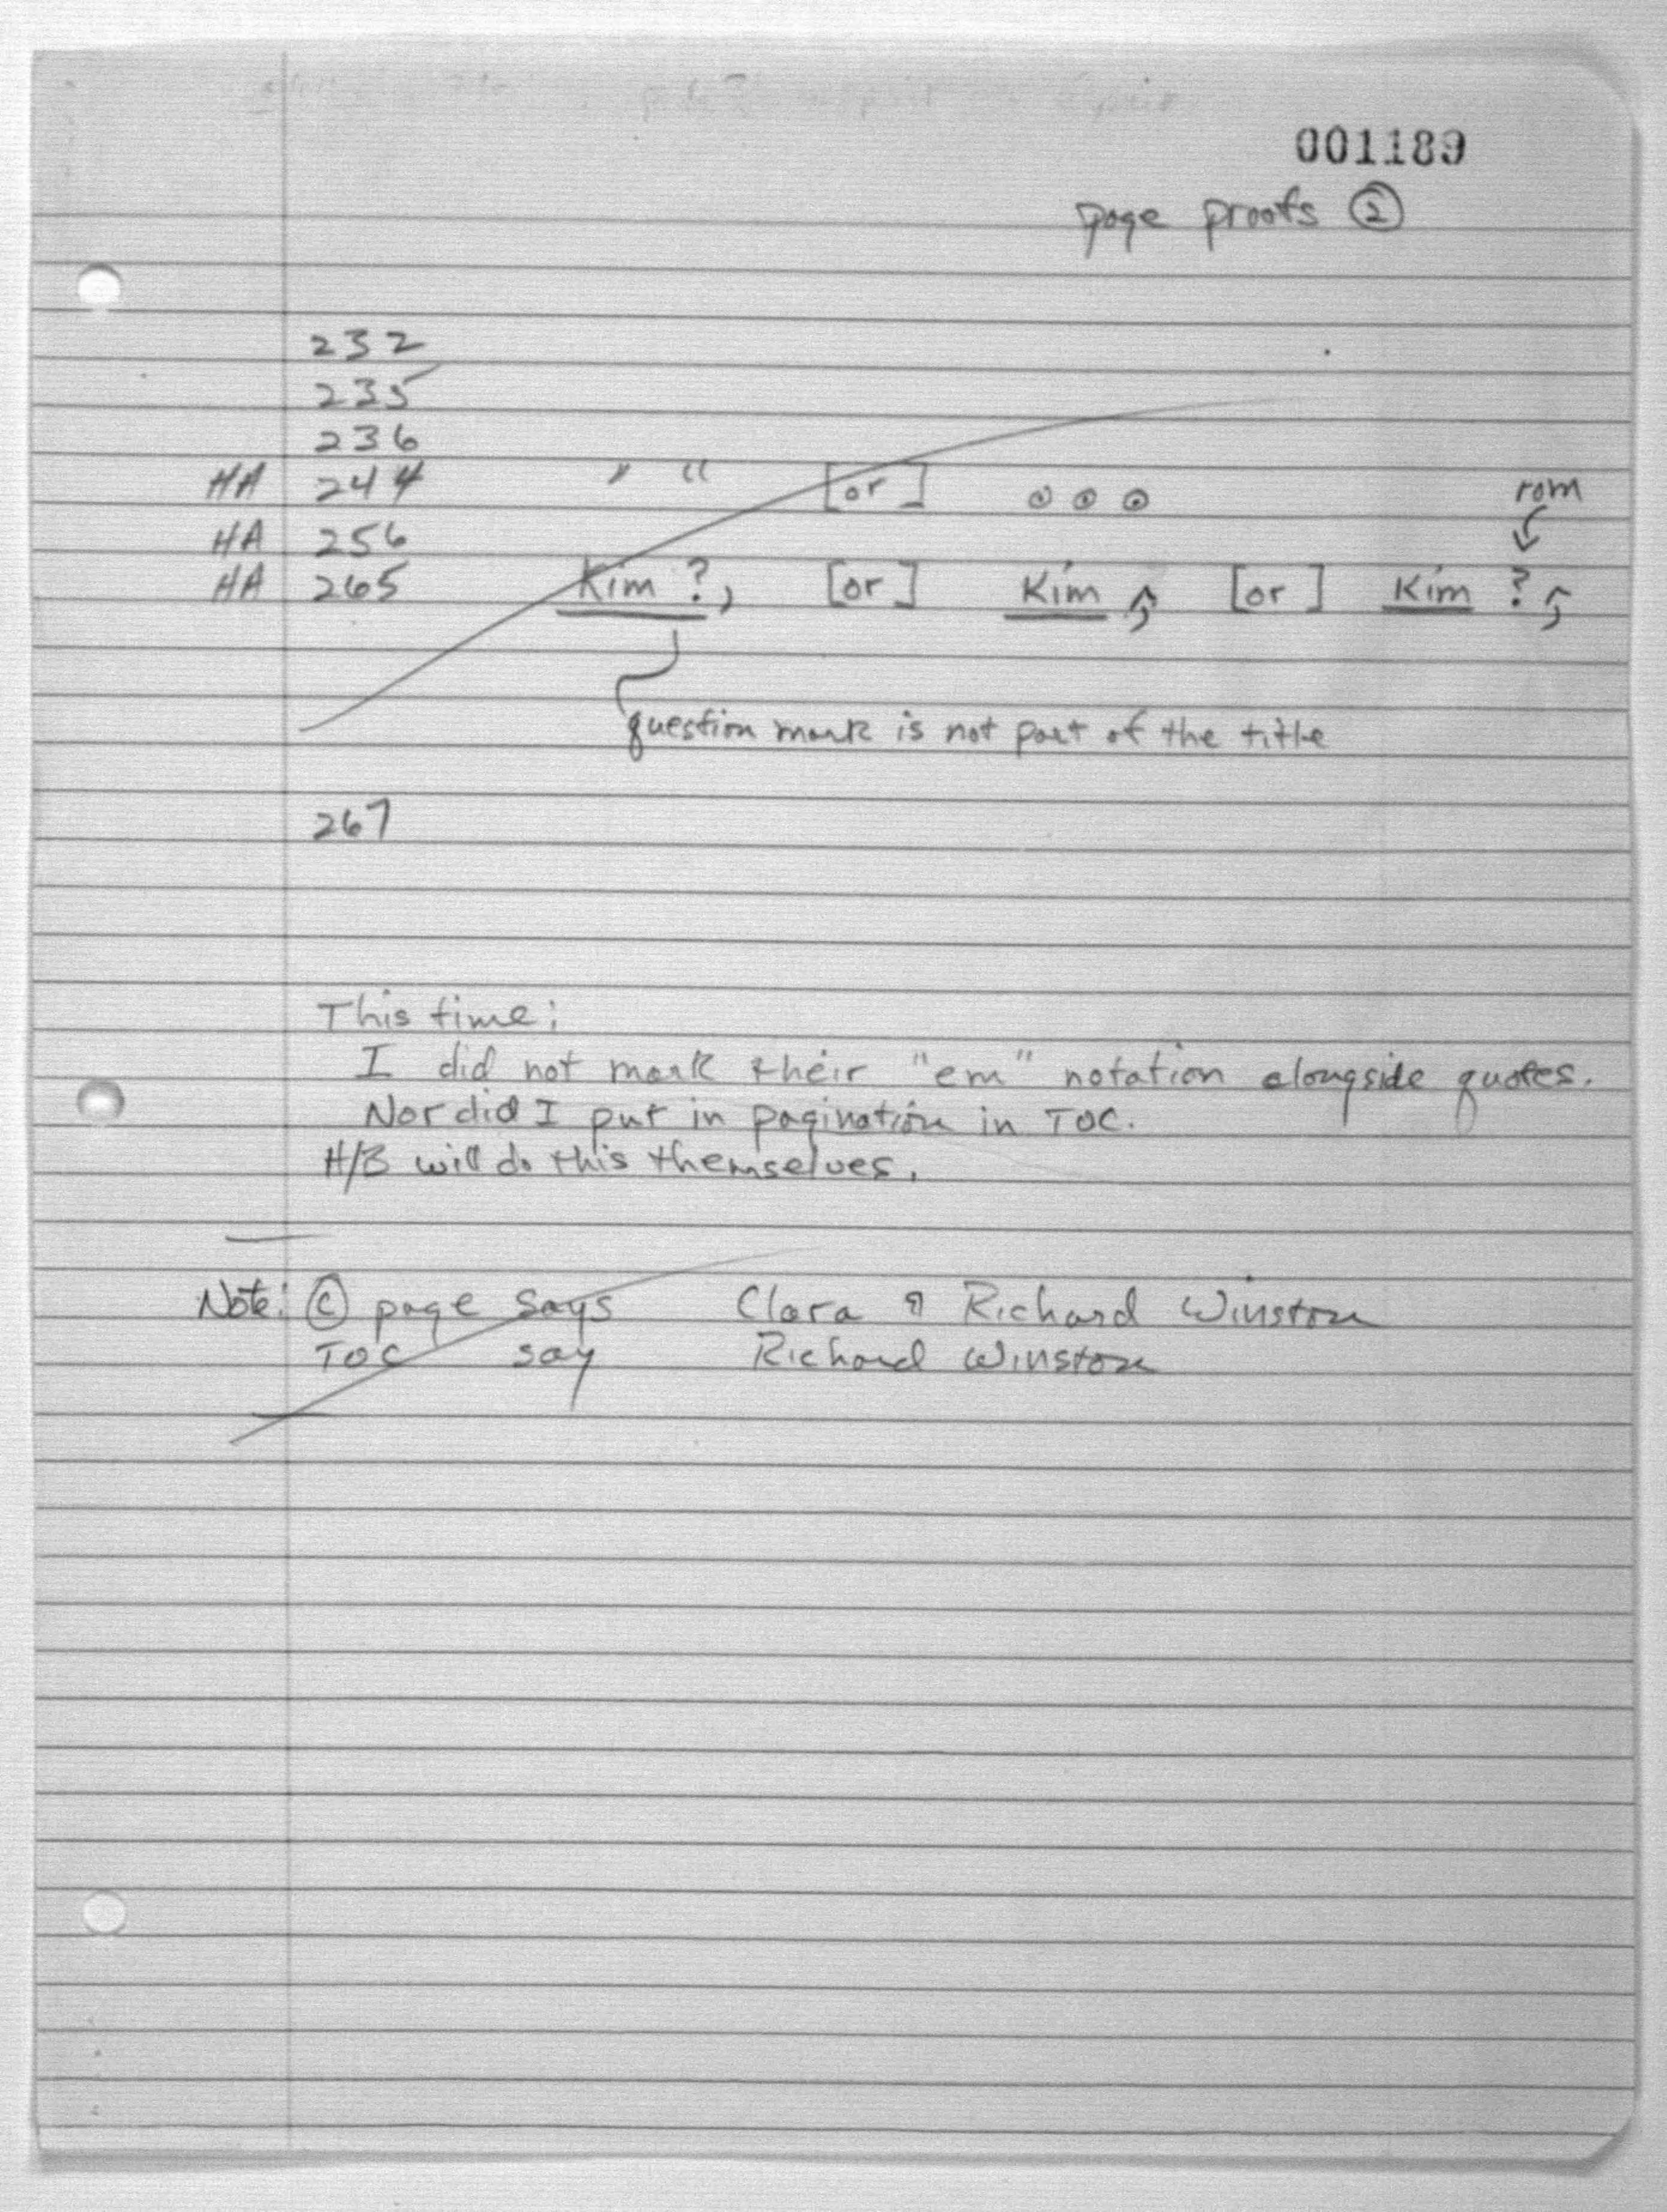 001189
page proofs ②
232
235
236
HA 244 " “ [or] ⊙ ⊙ ⊙ rom
HA 256
HA 265 Kim ?, [or] Kim ‸, [or] Kim ? ‸,
question mark is not part of the title
267
This time:
I did not mark their "em" notation alongside quotes.
Nor did I put in pagination in TOC.
H/B will do this themselves.
Note: © page says Clara & Richard Winston
TOC say Richard Winston